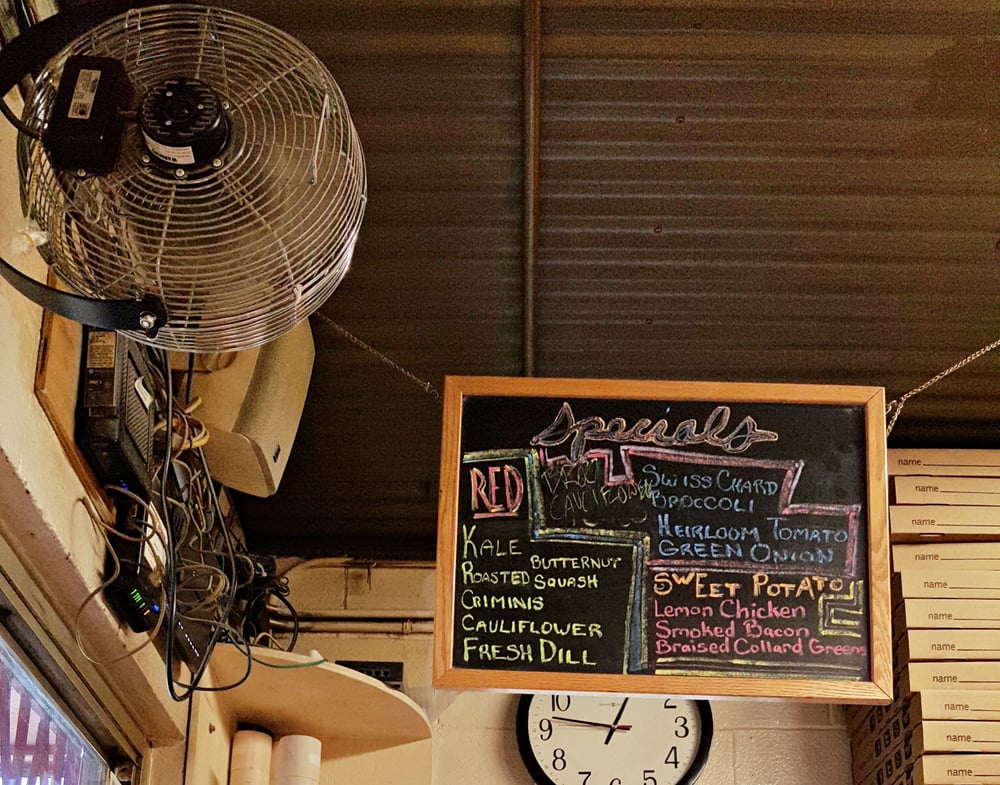 Specials
RED
KALE
ROASTED BUTTERNUT SQUASH
CRIMINIS
CAULIFLOWER
FRESH DILL
SWISS CHARD
BROCCOLI
HEIRLOOM TOMATO
GREEN ONION
SWEET POTATO
Lemon Chicken
Smoked Bacon
Braised Collard Greens
10
2
9
3
8
4
7
6
5
name
name
name
name
name
name
name
name
name
name
name
name